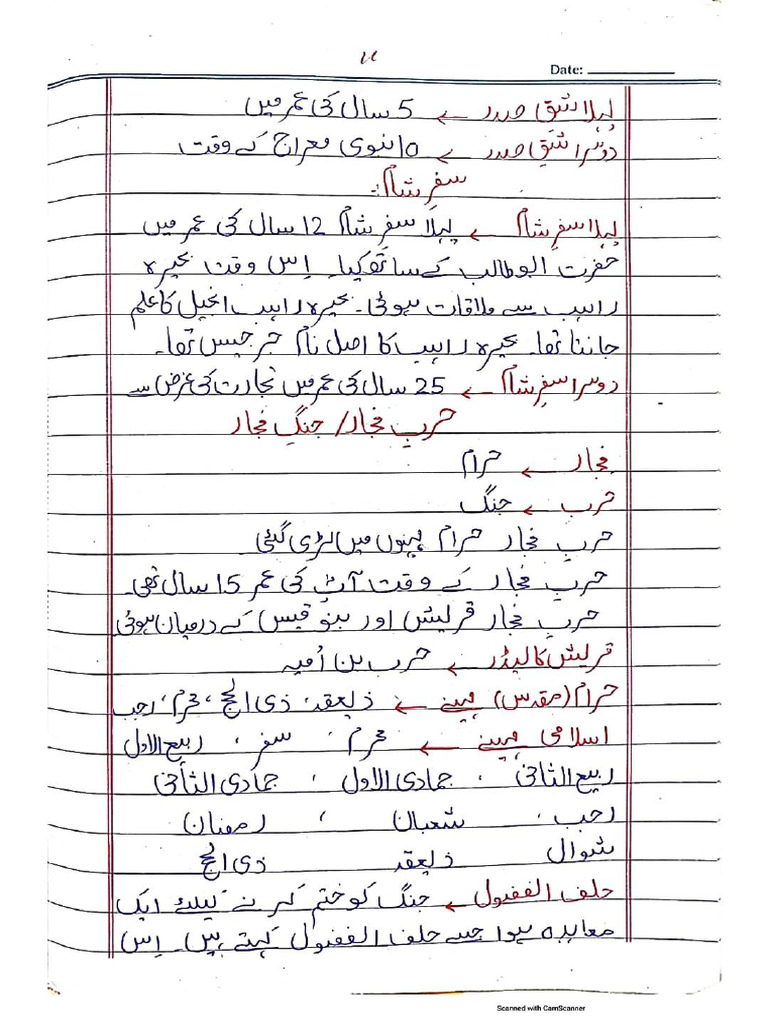 Date:
پہلا شق صدر ← 5 سال کی عمر میں
دوسرا شق صدر ← 10 نبوی معراج کے وقت
سفرِ شام:
پہلا سفرِ شام ← پہلا سفرِ شام 12 سال کی عمر میں
حضرت ابو طالب کے ساتھ کیا۔ اس وقت بحیرہ
راہب سے ملاقات ہوئی۔ بحیرہ راہب انجیل کا علم
جانتا تھا۔ بحیرہ راہب کا اصل نام جرجیس تھا۔
دوسرا سفرِ شام ← 25 سال کی عمر میں تجارت کی غرض سے
حربِ فجار / جنگِ فجار
فجار ← حرام
حرب ← جنگ
حربِ فجار حرام مہینوں میں لڑی گئی
حربِ فجار کے وقت آپؐ کی عمر 15 سال تھی۔
حربِ فجار قریش اور بنو قیس کے درمیان ہوئی
قریش کا لیڈر ← حرب بن اُمیہ
حرام (مقدس) مہینے ← ذلعقد، ذی الحج، محرم، رجب
اسلامی مہینے ← محرم، سفر، ربیع الاول
ربیع الثانی، جمادی الاول، جمادی الثانی
رجب، شعبان، رمضان
شوال ذلعقد ذی الحج
حلف الفضول ← جنگ کو ختم کرنے کیلئے ایک
معاہدہ ہوا جسے حلف الفضول کہتے ہیں۔ اِس
Scanned with CamScanner